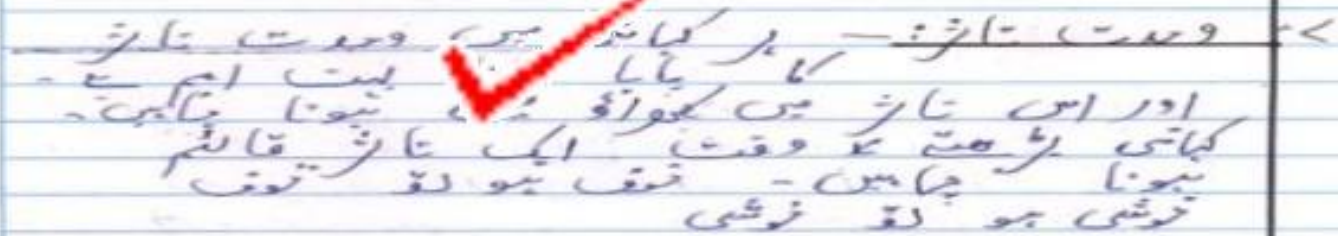 >- وحدت تاثر:- ہر کہانی میں وحدت تاثر
کا پایا بہت اہم ہے۔
اور اس تاثر میں ہونا چاہیں۔
کہانی پڑھتے وقت ایک تاثر قائم
ہونا چاہیں۔ خوف ہو تو خوف
خوشی ہو تو خوشی